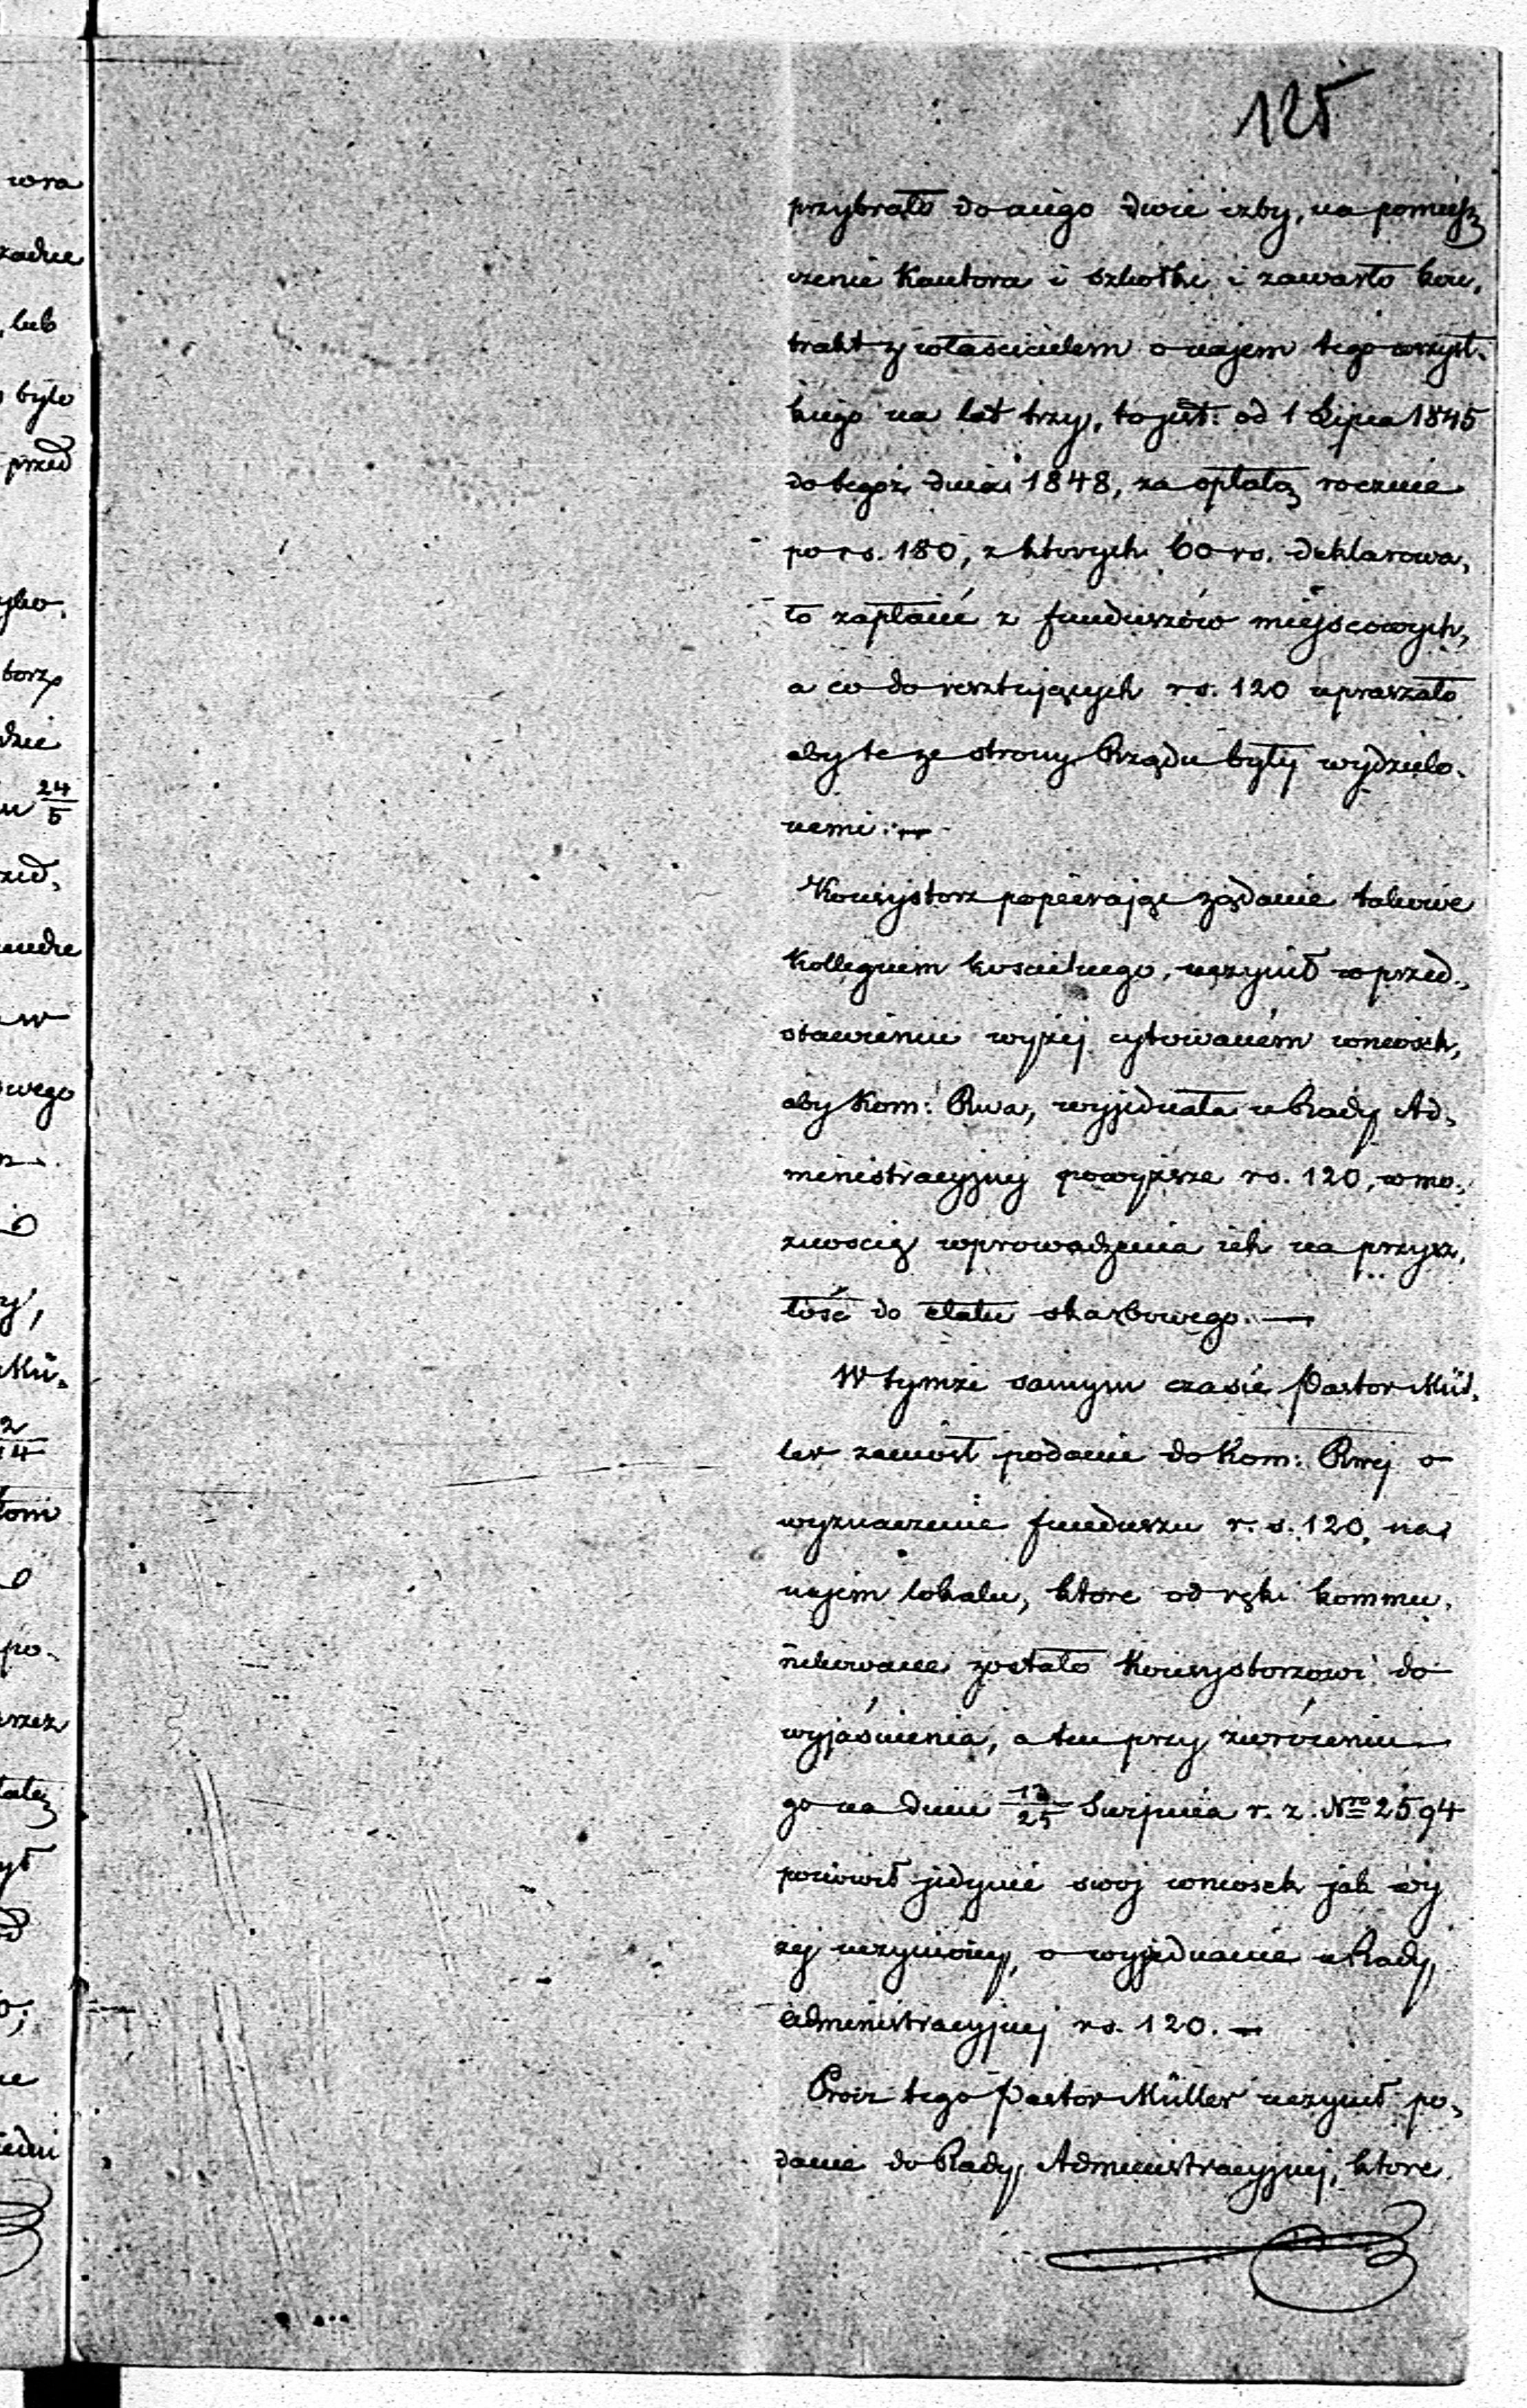 125
przybrało do niego dwie izby, na pomiesz
czenie Kantora i szkołki i zawarło kon,
trakt z właścicielem o najem tego wszyst,
kiego na lat trzy, to jest: od 1 Lipca 1845
do tegoż dnia 1848, za opłatą rocznie
po rs. 180, z ktorych 60 rs. deklarowa,
ło zapłacić z funduszów miejscowych,
a co do resztujących rs. 120 upraszało
aby te ze strony Rządu były wydzielo,
nemi.—
Konsystorz popierając żądanie takowe
Kollegium koscielnego, uczynił w przed,
stawieniu wyżej cytowaném wniosek,
aby Kom: Rwa, wyjednała u Rady Ad,
ministracyjnej powyższe rs. 120, w mo,
żnością wprowadzenia ich na przysz,
łość do etatu skarbowego.—
W tymże samym czasie Pastor Mül,
ler zaniosł podanie do Kom: Rwej o
wyznaczenie funduszu r. s. 120, na
najem lokalu, ktore od ręki kommu,
nikowane zostało Konsystorzowi do
wyjaśnienia, a ten przy zwróceniu
go na dniu 13/25 Sierpnia r. z. Nro 2594
ponowił jedynie swoj wniosek jak wy
żej uczyniony, o wyjednanie u Rady
Administracyjnej rs. 120.—
Procz tego Pastor Müller uczynił po,
danie do Rady Administracyjnej, ktore
wra
lub
było
przed
24/5
w
2/14
po,